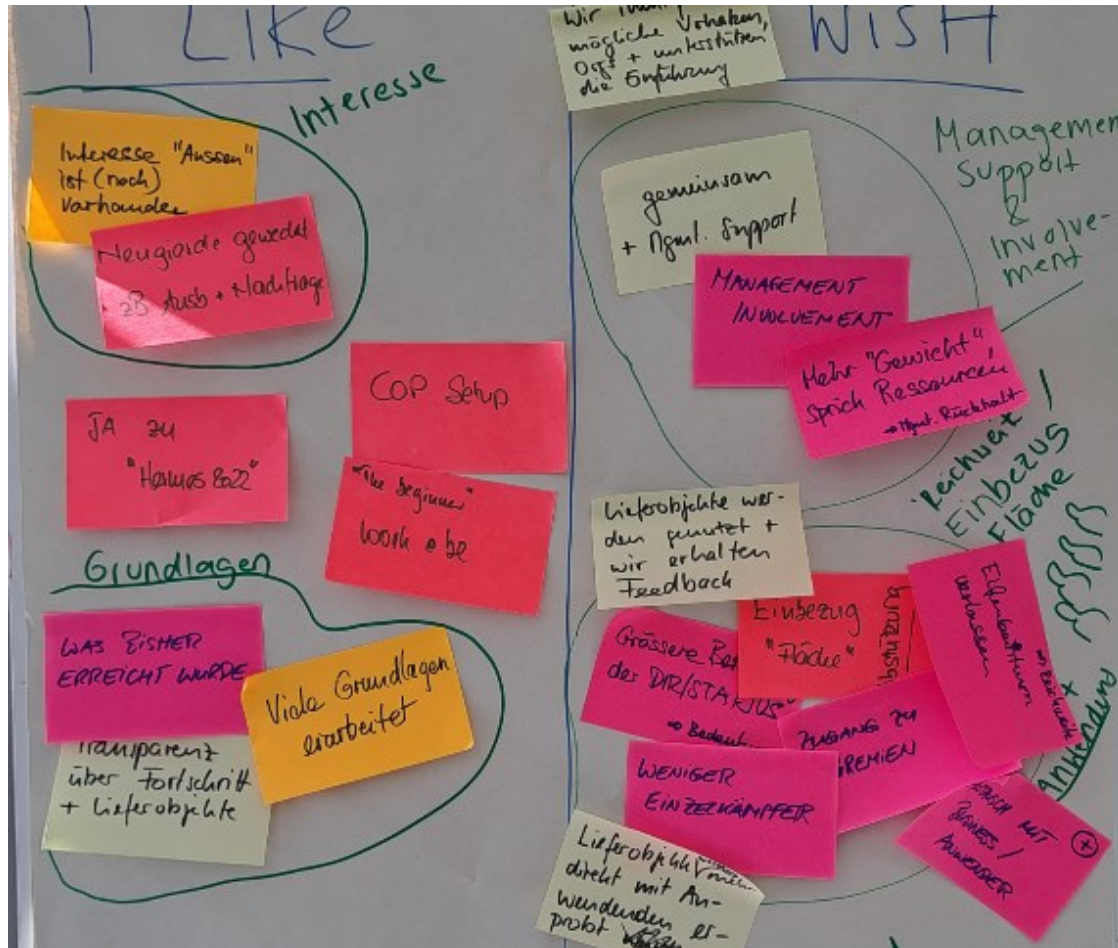 I LIKE
Interesse
Interesse "Aussen"
ist (noch)
vorhanden
Neugierde geweckt
zB Ausb + Nachfrage
JA zu
"Hermes 2022"
COP Setup
"the beginner"
Grundlagen
WAS BISHER
ERREICHT WURDE
Viele Grundlagen
erarbeitet
Transparenz
über Fortschritt
+ Lieferobjekte
WISH
Wir
mögliche Vorhaben,
+ unterstützen
die Einführung
Management
Support
&
Involve-
ment
gemeinsam
+ Mgmt. Support
MANAGEMENT
INVOLVEMENT
Mehr "Gewicht"
sprich Ressourcen
→ Mgmt. Rückhalt
Reichweit /
Einbezug
Fläche
+
Anwendung
Lieferobjekte wer-
den genutzt +
wir erhalten
Feedback
Einbezug
"Fläche"
Elfenbeinturm
verlassen
→ Reichweite
Grössere
der
ZUGANG ZU
REMIEN
WENIGER
EINZELKÄMPFER
MIT
BUSINESS /
ANWENDER
+
Lieferobjekte
direkt mit An-
wendenden er-
probt